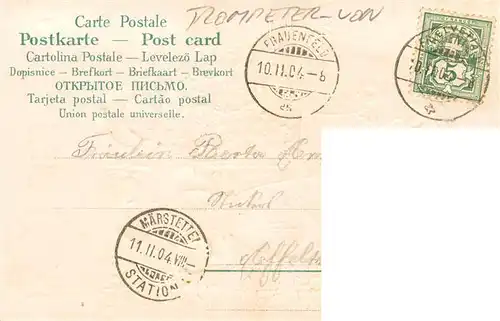 Carte Postale
TROMPETER-VON
Postkarte — Post card
Cartolina Postale — Levelező Lap
Dopisnice — Brefkort — Briefkaart — Brevkort
ОТКРЫТОЕ ПИСЬМО.
Tarjeta postal — Cartão postal
Union postale universelle.
FRAUENFELD
10.II.04.-8
HELVETIA
5
Fräulein Berta
MÄRSTETTEN
11.II.04.VIII-
STATION